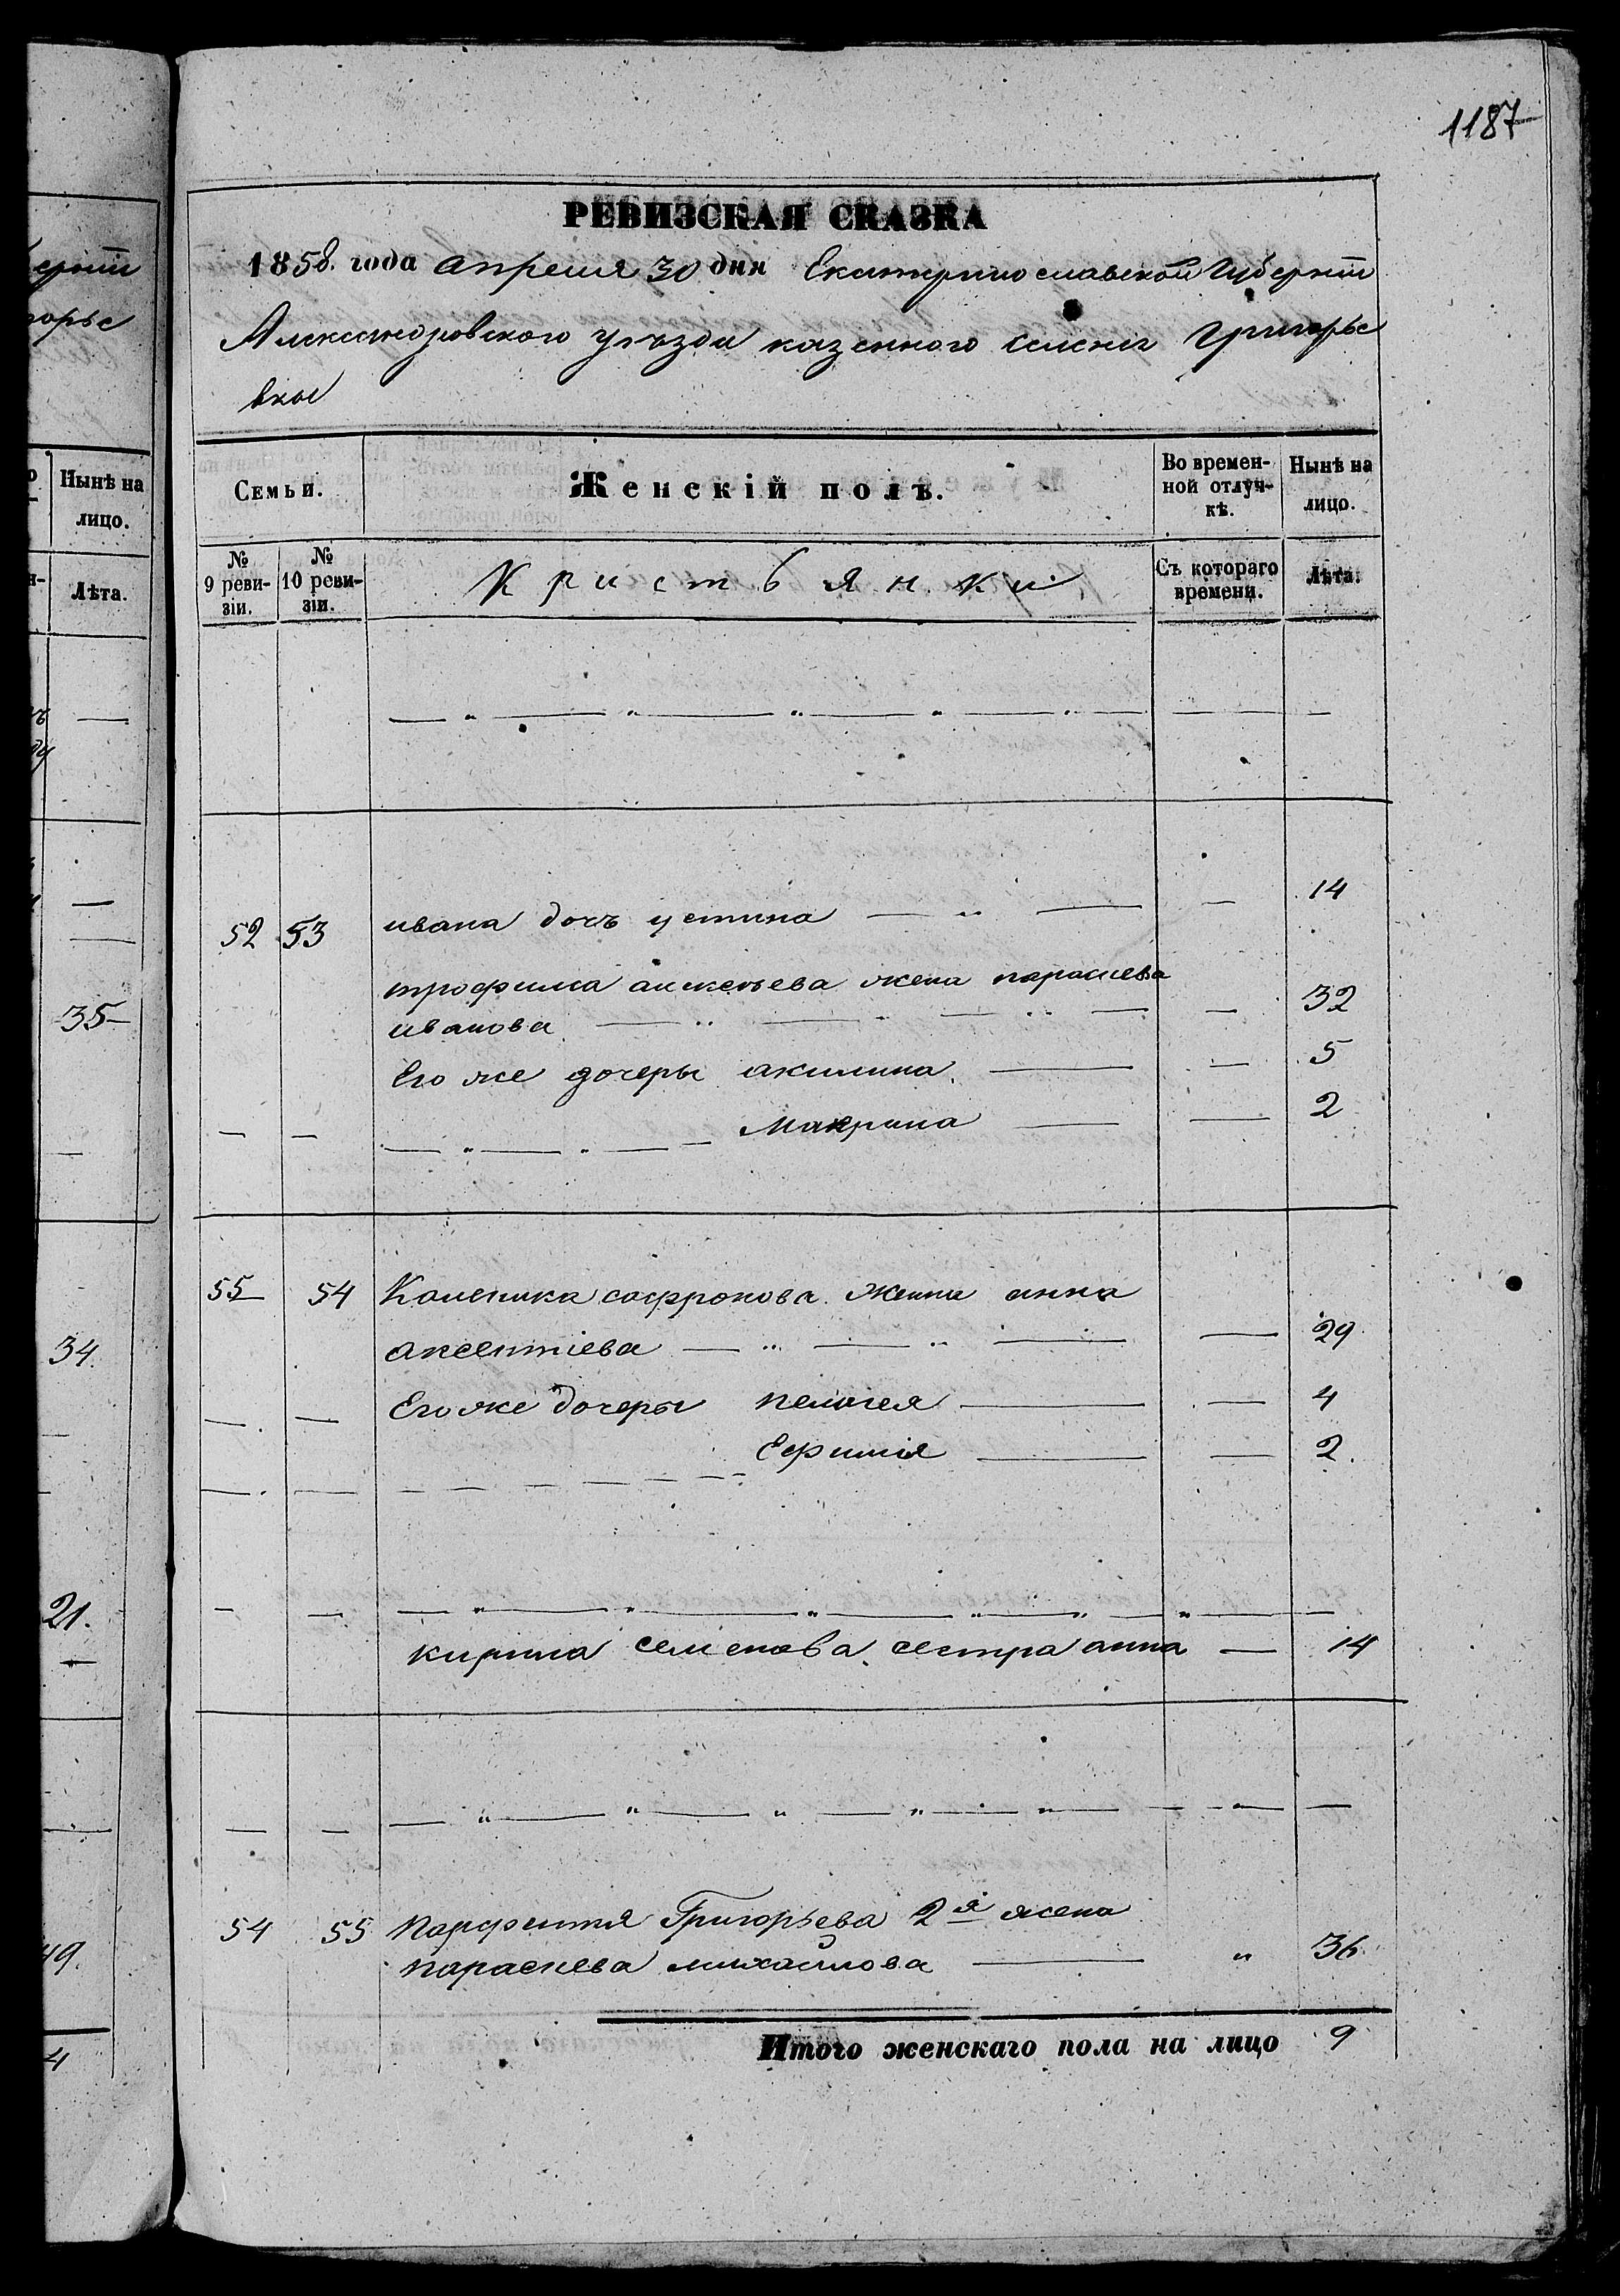 1187
РЕВИЗСКАЯ СКАЗКА
1858. года апреля 30 дня Екатеринославской Губерніи
Александровского уѣзда казенного селенія Григорье
вки
Семьи.
Женскій полъ.
Во времен-
ной отлуч-
кѣ.
Нынѣ на
лицо.
№
9 реви-
зіи.
№
10 реви-
зіи.
Кристьянки.
Съ котораго
времени.
Лѣта.
52 53 ивана дочъ устина — 14
трофима алексѣева жена параскева
иванова — 32
Его же дочеры акилина — 5
Макрина — 2
55 54 Калиника сафронова жена анна
аксентіева — 29
Его же дочеры пелагея — 4
Ефимія — 2.
кирила семенова сестра анна — 14
54 55 Парфентія Григорьева 2я жена
параскева михайлова — „ 36
Итого женскаго пола на лицо 9
ерніи
горье
Нынѣ на
лицо.
Лѣта.
35
34.
21.
49.
4